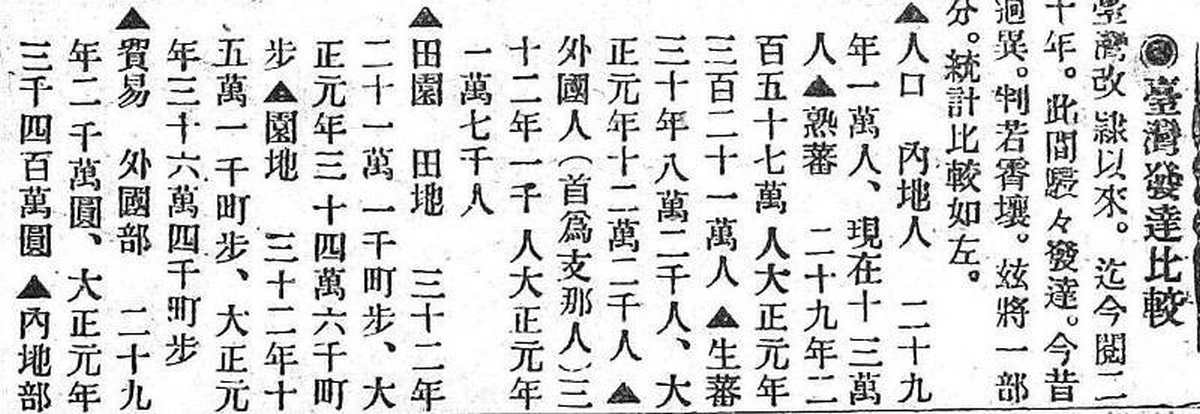 ◉臺灣發達比較
臺灣改隸以來。迄今閱二
十年。此間駸々發達。今昔
迥異。判若霄壤。玆將一部
分。統計比較如左。
▲人口 內地人 二十九
年一萬人、現在十三萬
人▲熟蕃 二十九年二
百五十七萬人大正元年
三百二十一萬人▲生蕃
三十年八萬二千人、大
正元年十二萬二千人▲
外國人(首爲支那人)三
十二年一千人大正元年
一萬七千人
▲田園 田地 三十二年
二十一萬一千町步、大
正元年三十四萬六千町
步▲園地 三十二年十
五萬一千町步、大正元
年三十六萬四千町步
▲貿易 外國部 二十九
年二千萬圓、大正元年
三千四百萬圓▲內地部